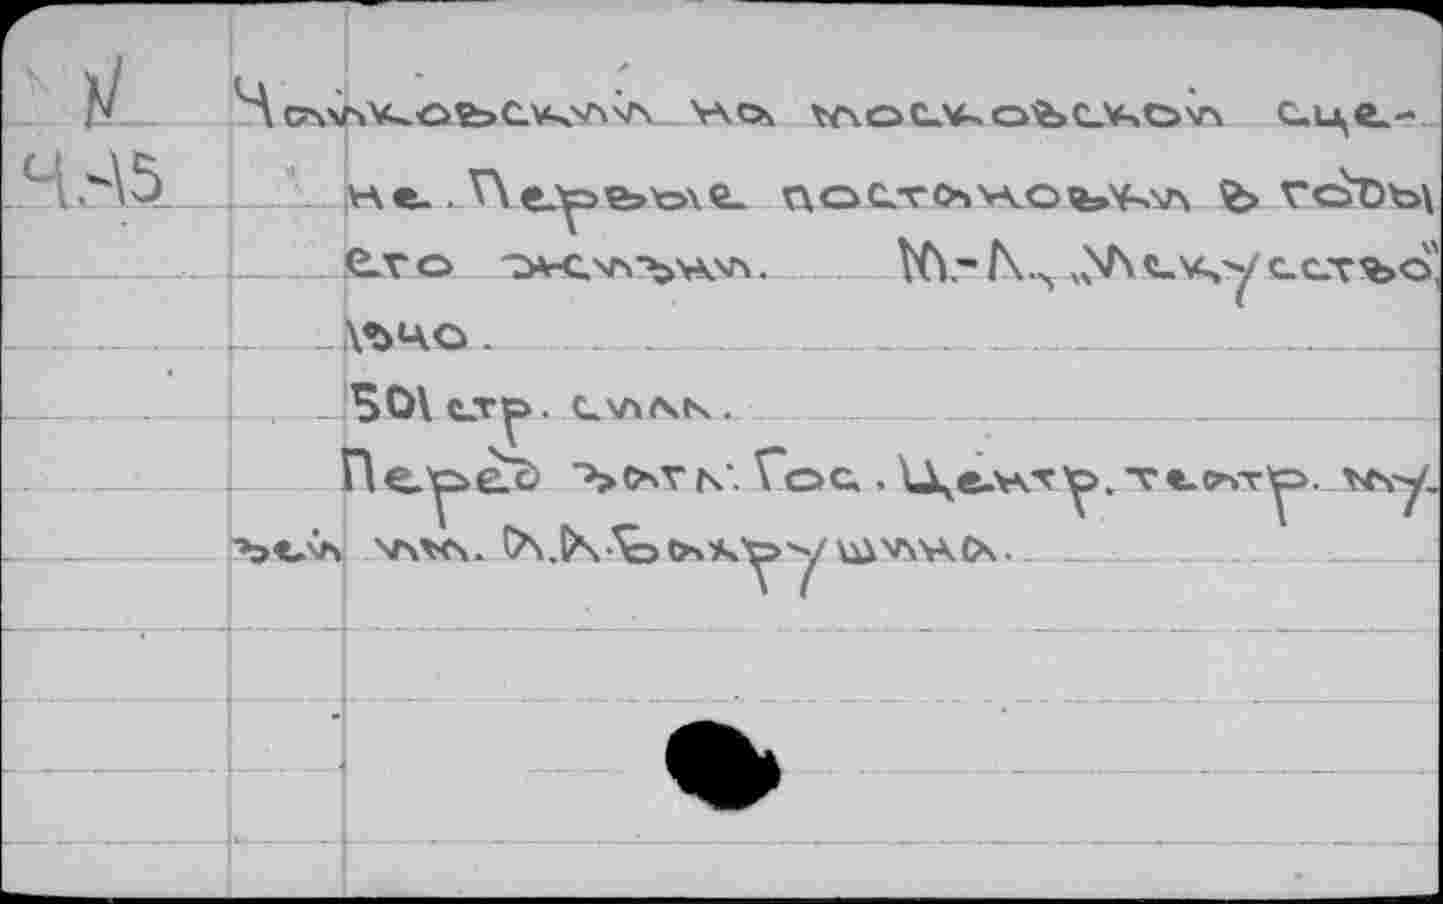 N Чайковский на московской сце-
Ч.-15 не. Первые постановки в годы
его жизни. М.-Л., „Искусство",
1940.
501 стр. с илл.
Перед загл: Гос. Центр. театр. му-
зей им. А.А. Бахрушина.